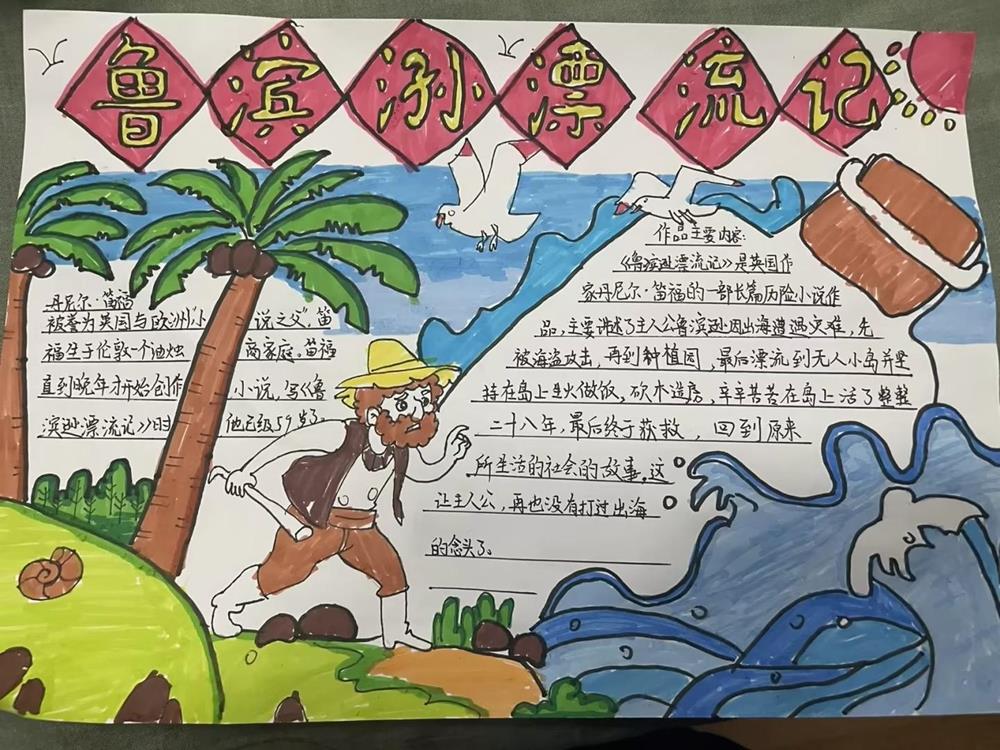 鲁滨孙漂流记
丹尼尔·笛福
被誉为英国与欧洲小说之父”,笛
福生于伦敦一个油烛商家庭。笛福
直到晚年才开始创作小说,写《鲁
滨逊漂流记》时他已经59岁了.
作品主要内容:
《鲁滨逊漂流记》是英国作
家丹尼尔·笛福的一部长篇历险小说作
品,主要讲述了主人公鲁滨逊因出海遭遇灾难,先
被海盗攻击,再到种植园,最后漂流到无人小岛并坚
持在岛上生火做饭,砍木造房,辛辛苦苦在岛上活了整整
二十八年,最后终于获救,回到原来
所生活的社会的故事,这
让主人公,再也没有打过出海
的念头了。